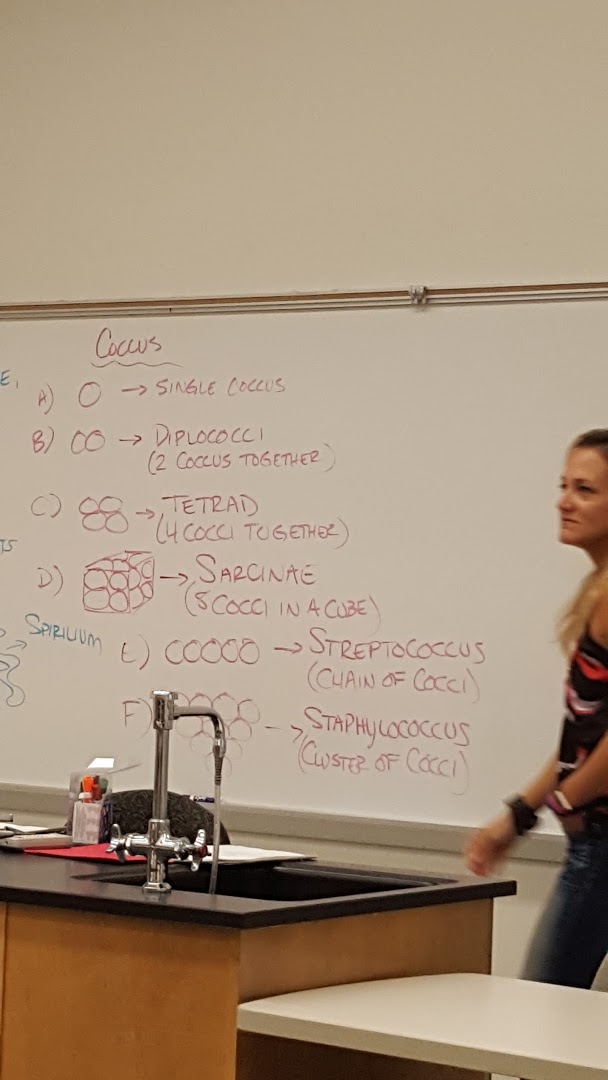 COCCUS
E,
A) → SINGLE COCCUS
B) → DIPLOCOCCI
(2 COCCUS TOGETHER)
C) → TETRAD
(4 COCCI TOGETHER)
TS
D) → SARCINAE
(8 COCCI IN A CUBE)
SPIRILIUM
E) → STREPTOCOCCUS
(CHAIN OF COCCI)
F) → STAPHYLOCOCCUS
(CLUSTER OF COCCI)